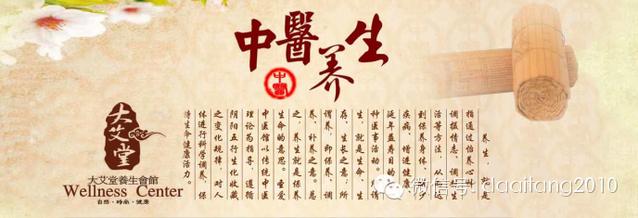 中醫养生
中醫
养生，就是
指通过怡养心神、
调摄情志、调剂生
活等方法，从而达
到保养身体、减少
疾病、增进健康、
延年益寿目的的一
种医事活动。所谓
生，就是生命、生
存、生长之意；所
谓养，即保养、调
养、补养之意。总
之，养生就是保养
生命的意思。圣爱
中医馆以传统中医
理论为指导，遵循
阴阳五行生化收藏
之变化规律，对人
体进行科学调养，保
持生命健康活力。
大艾堂
大艾堂養生會館
Wellness Center
自然·時尚·健康
微信号: daaitang2010